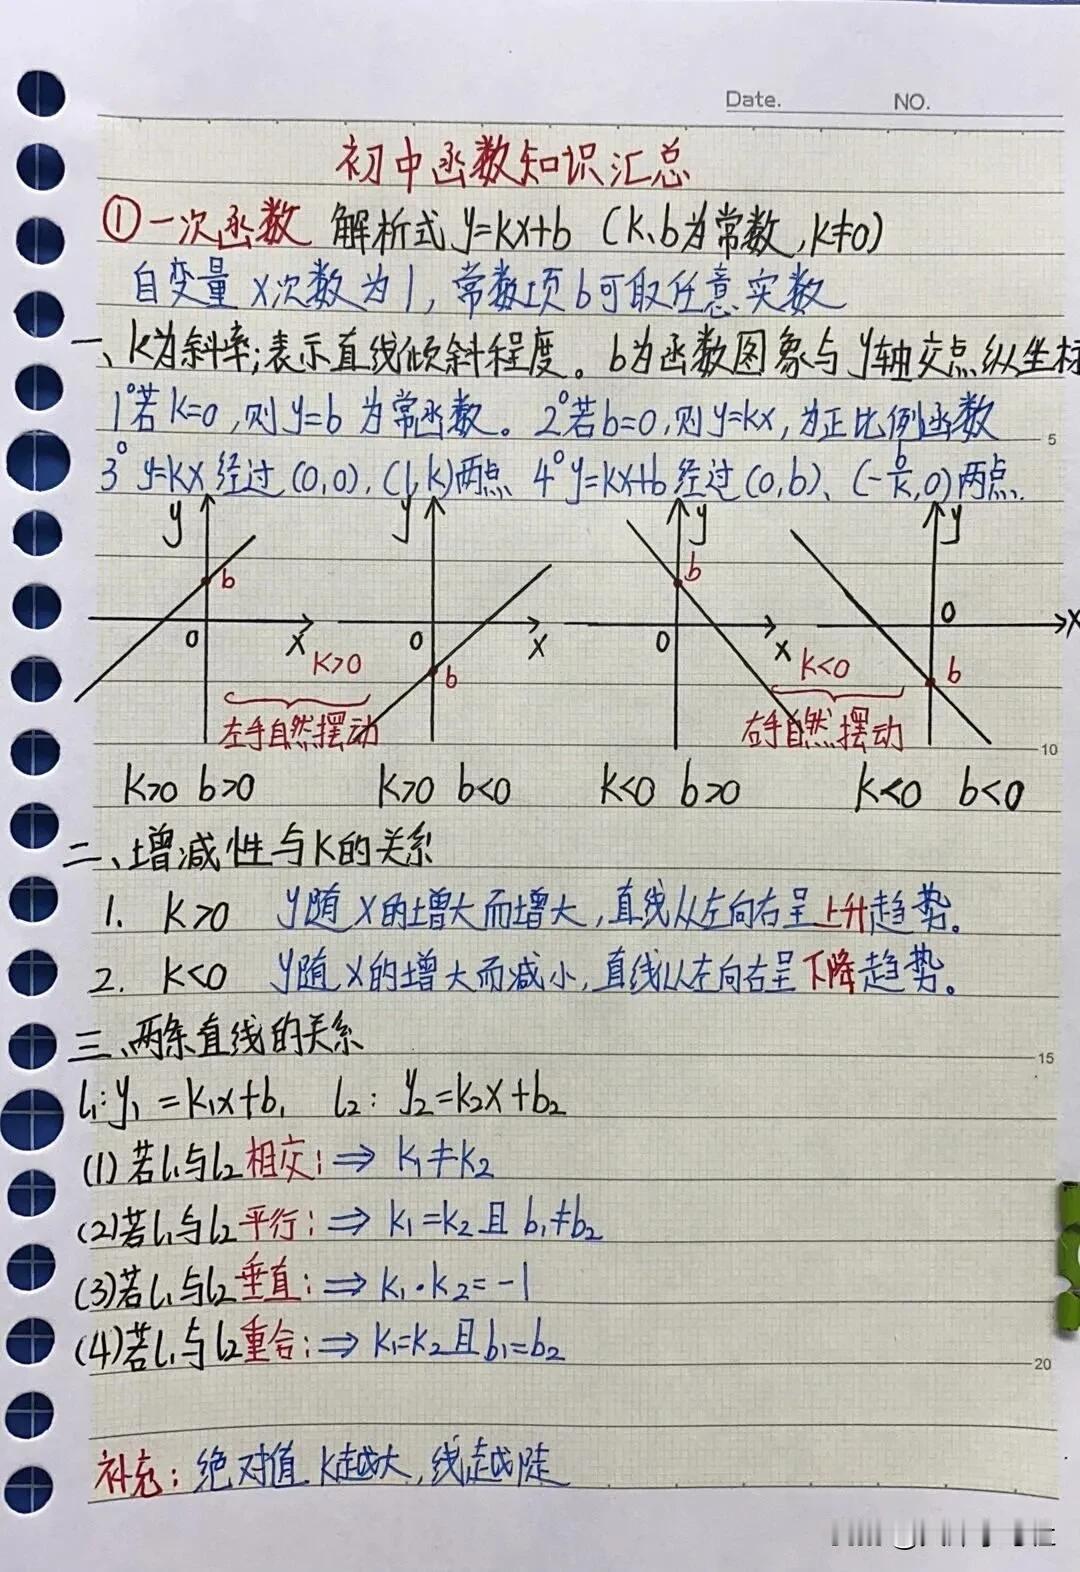 Date. NO.
初中函数知识汇总
①一次函数 解析式 y=kx+b (k、b为常数,k≠0)
自变量 x次数为1, 常数项b可取任意实数
一、k为斜率;表示直线倾斜程度。b为函数图象与y轴交点纵坐标
1°若k=0,则y=b 为常函数。2°若b=0,则y=kx,为正比例函数
5
3° y=kx 经过(0,0),(1,k)两点、4° y=kx+b经过(0,b)、(-b/k,0)两点.
y y y y
b b
0 x 0 x 0 x 0 x
k>0 b k<0 b
左手自然摆动 右手自然摆动
10
k>0 b>0 k>0 b<0 k<0 b>0 k<0 b<0
二、增减性与k的关系
1. k>0 y随x的增大而增大,直线从左向右呈上升趋势。
2. k<0 y随x的增大而减小,直线从左向右呈下降趋势。
三、两条直线的关系
15
l₁:y₁=k₁x+b₁ l₂: y₂=k₂x+b₂
(1)若l₁与l₂相交:⇒ k₁≠k₂
(2)若l₁与l₂平行:⇒ k₁=k₂且 b₁≠b₂
(3)若l₁与l₂垂直:⇒ k₁·k₂=-1
(4)若l₁与l₂重合:⇒ k₁=k₂且b₁=b₂
20
补充:绝对值k越大,线越陡